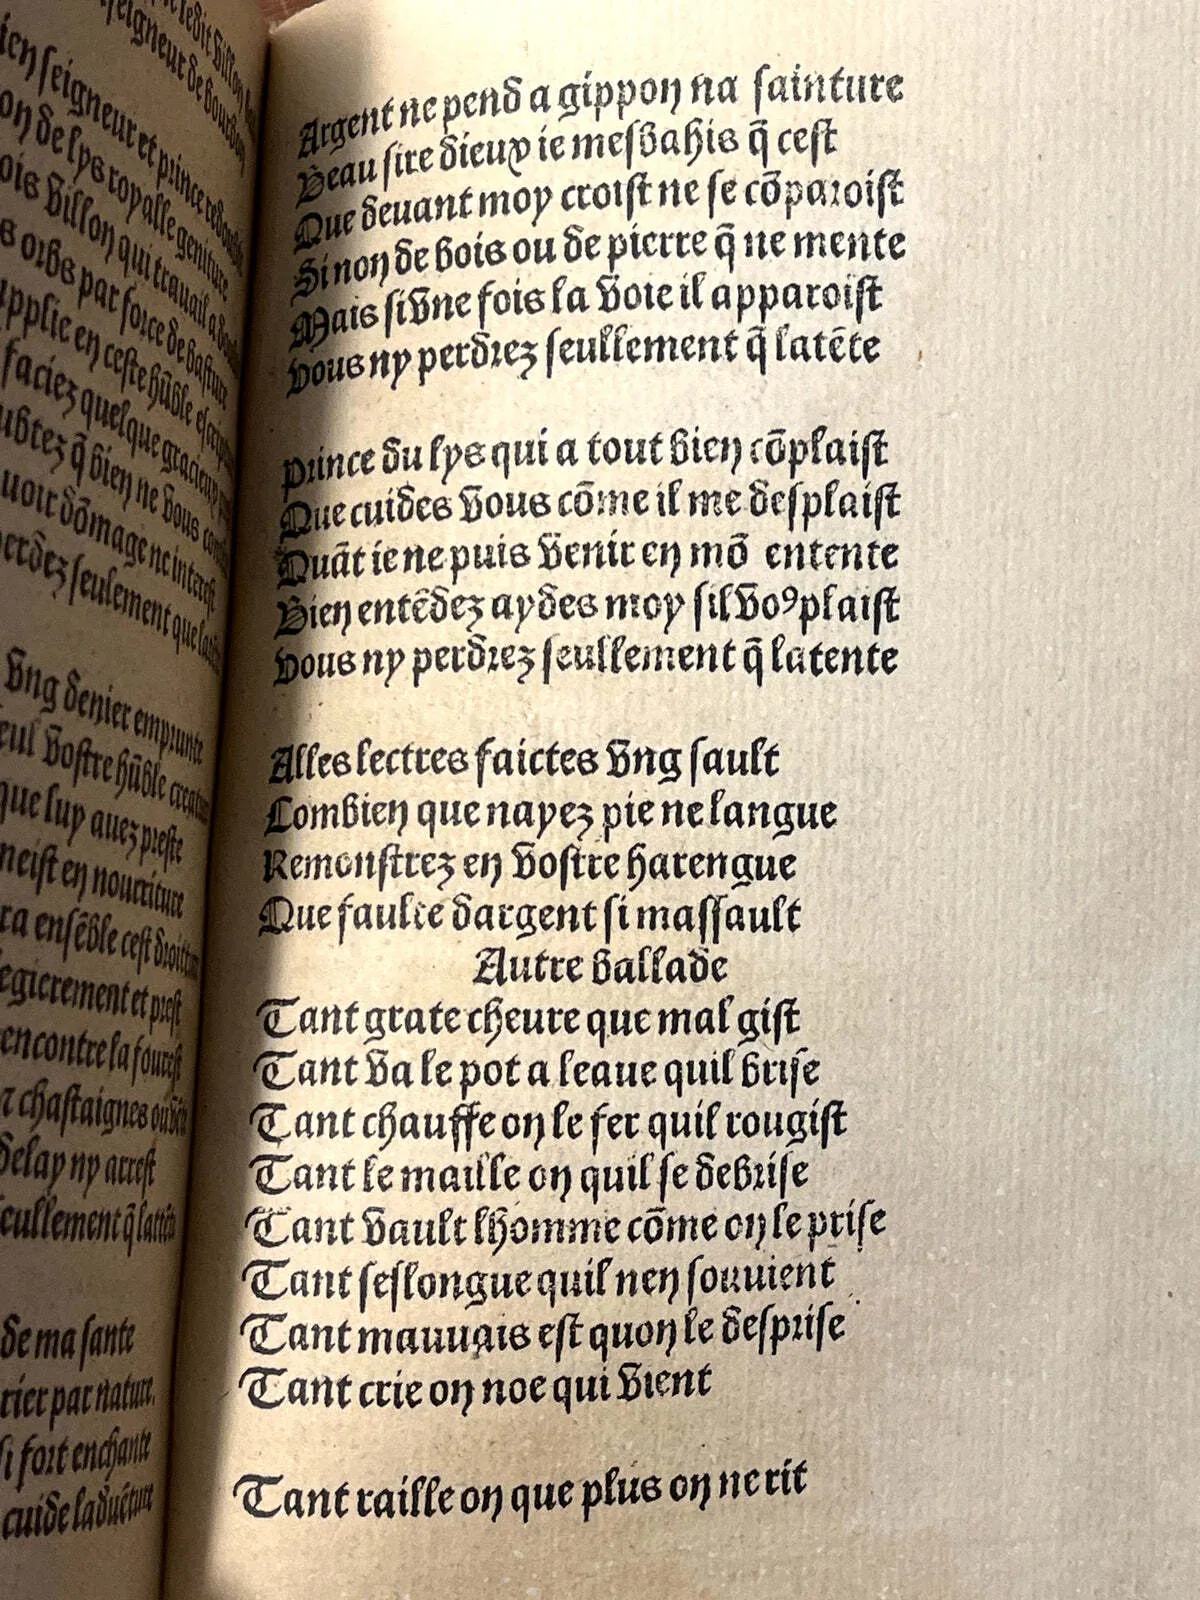 redit Villon
seigneur de bourbon
seigneur et prince redoubte
de lys royalle geniture
Villon qui travail a
orbs par force de basture
en ceste hūble escript
faciez quelque gracieux
q̄ bien ne vous
dōmage ne interest
perdez seulement que
Vng denier emprunte
vostre hūble creature
que luy avez preste
en nourriture
ensēble cest droitture
et prest
encontre la fourest
chastaignes ou
delay ny arrest
seullement q̄
de ma sante
par nature.
si fort enchante
cuide
Argent ne pend a gippon na sainture
Beau sire dieux ie mesbahis q̄ cest
Que devant moy croist ne se cōparoist
Si non de bois ou de pierre q̄ ne mente
Mais si vne fois la voie il apparoist
Vous ny perdrez seullement q̄ latēte
Prince du lys qui a tout bien cōplaist
Que cuides vous cōme il me desplaist
Quāt ie ne puis venir en mō entente
Bien entēdez aydes moy sil voꝰ plaist
Vous ny perdrez seullement q̄ latente
Alles lectres faictes vng sault
Combien que nayez pie ne langue
Remonstrez en vostre harengue
Que faulte dargent si massault
Autre ballade
Tant grate cheure que mal gist
Tant va le pot a leaue quil brise
Tant chauffe on le fer quil rougist
Tant le maille on quil se debrise
Tant vault lhomme cōme on le prise
Tant seslongue quil nen souuient
Tant mauuais est quon le desprise
Tant crie on noe qui vient
Tant raille on que plus on ne rit